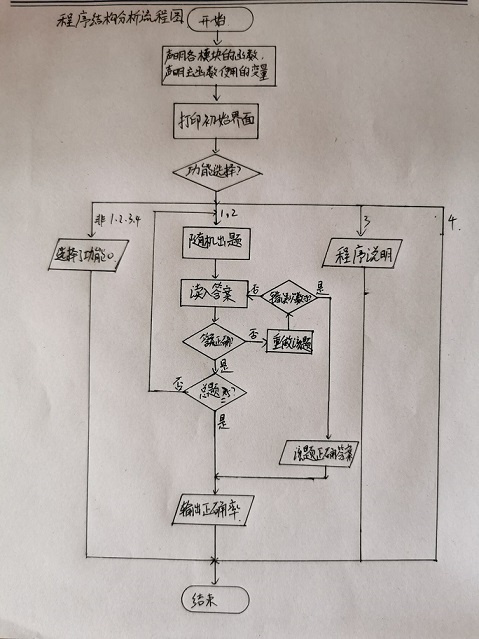 程序结构分析流程图
开始
声明各模块的函数.
声明主函数使用的变量
打印初始界面
功能选择?
非1.2.3.4
1,2
3
4.
随机出题
程序说明
读入答案
否
是
否
重做该题
是
否
是
该题正确答案
输出正确率.
结束